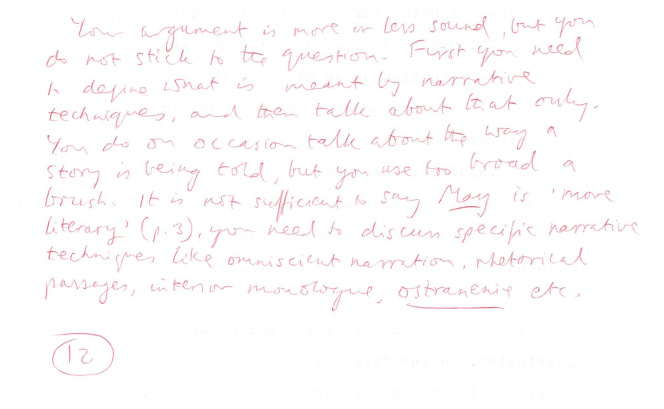 Your argument is more or less sound, but you
do not stick to the question. First you need
to define what is meant by narrative
techniques, and then talk about that only.
You do on occasion talk about the way a
story is being told, but you use too broad a
brush. It is not sufficient to say May is 'more
literary' (p.3), you need to discuss specific narrative
techniques like omniscient narration, rhetorical
passages, interior monologue, ostranenie etc.
12